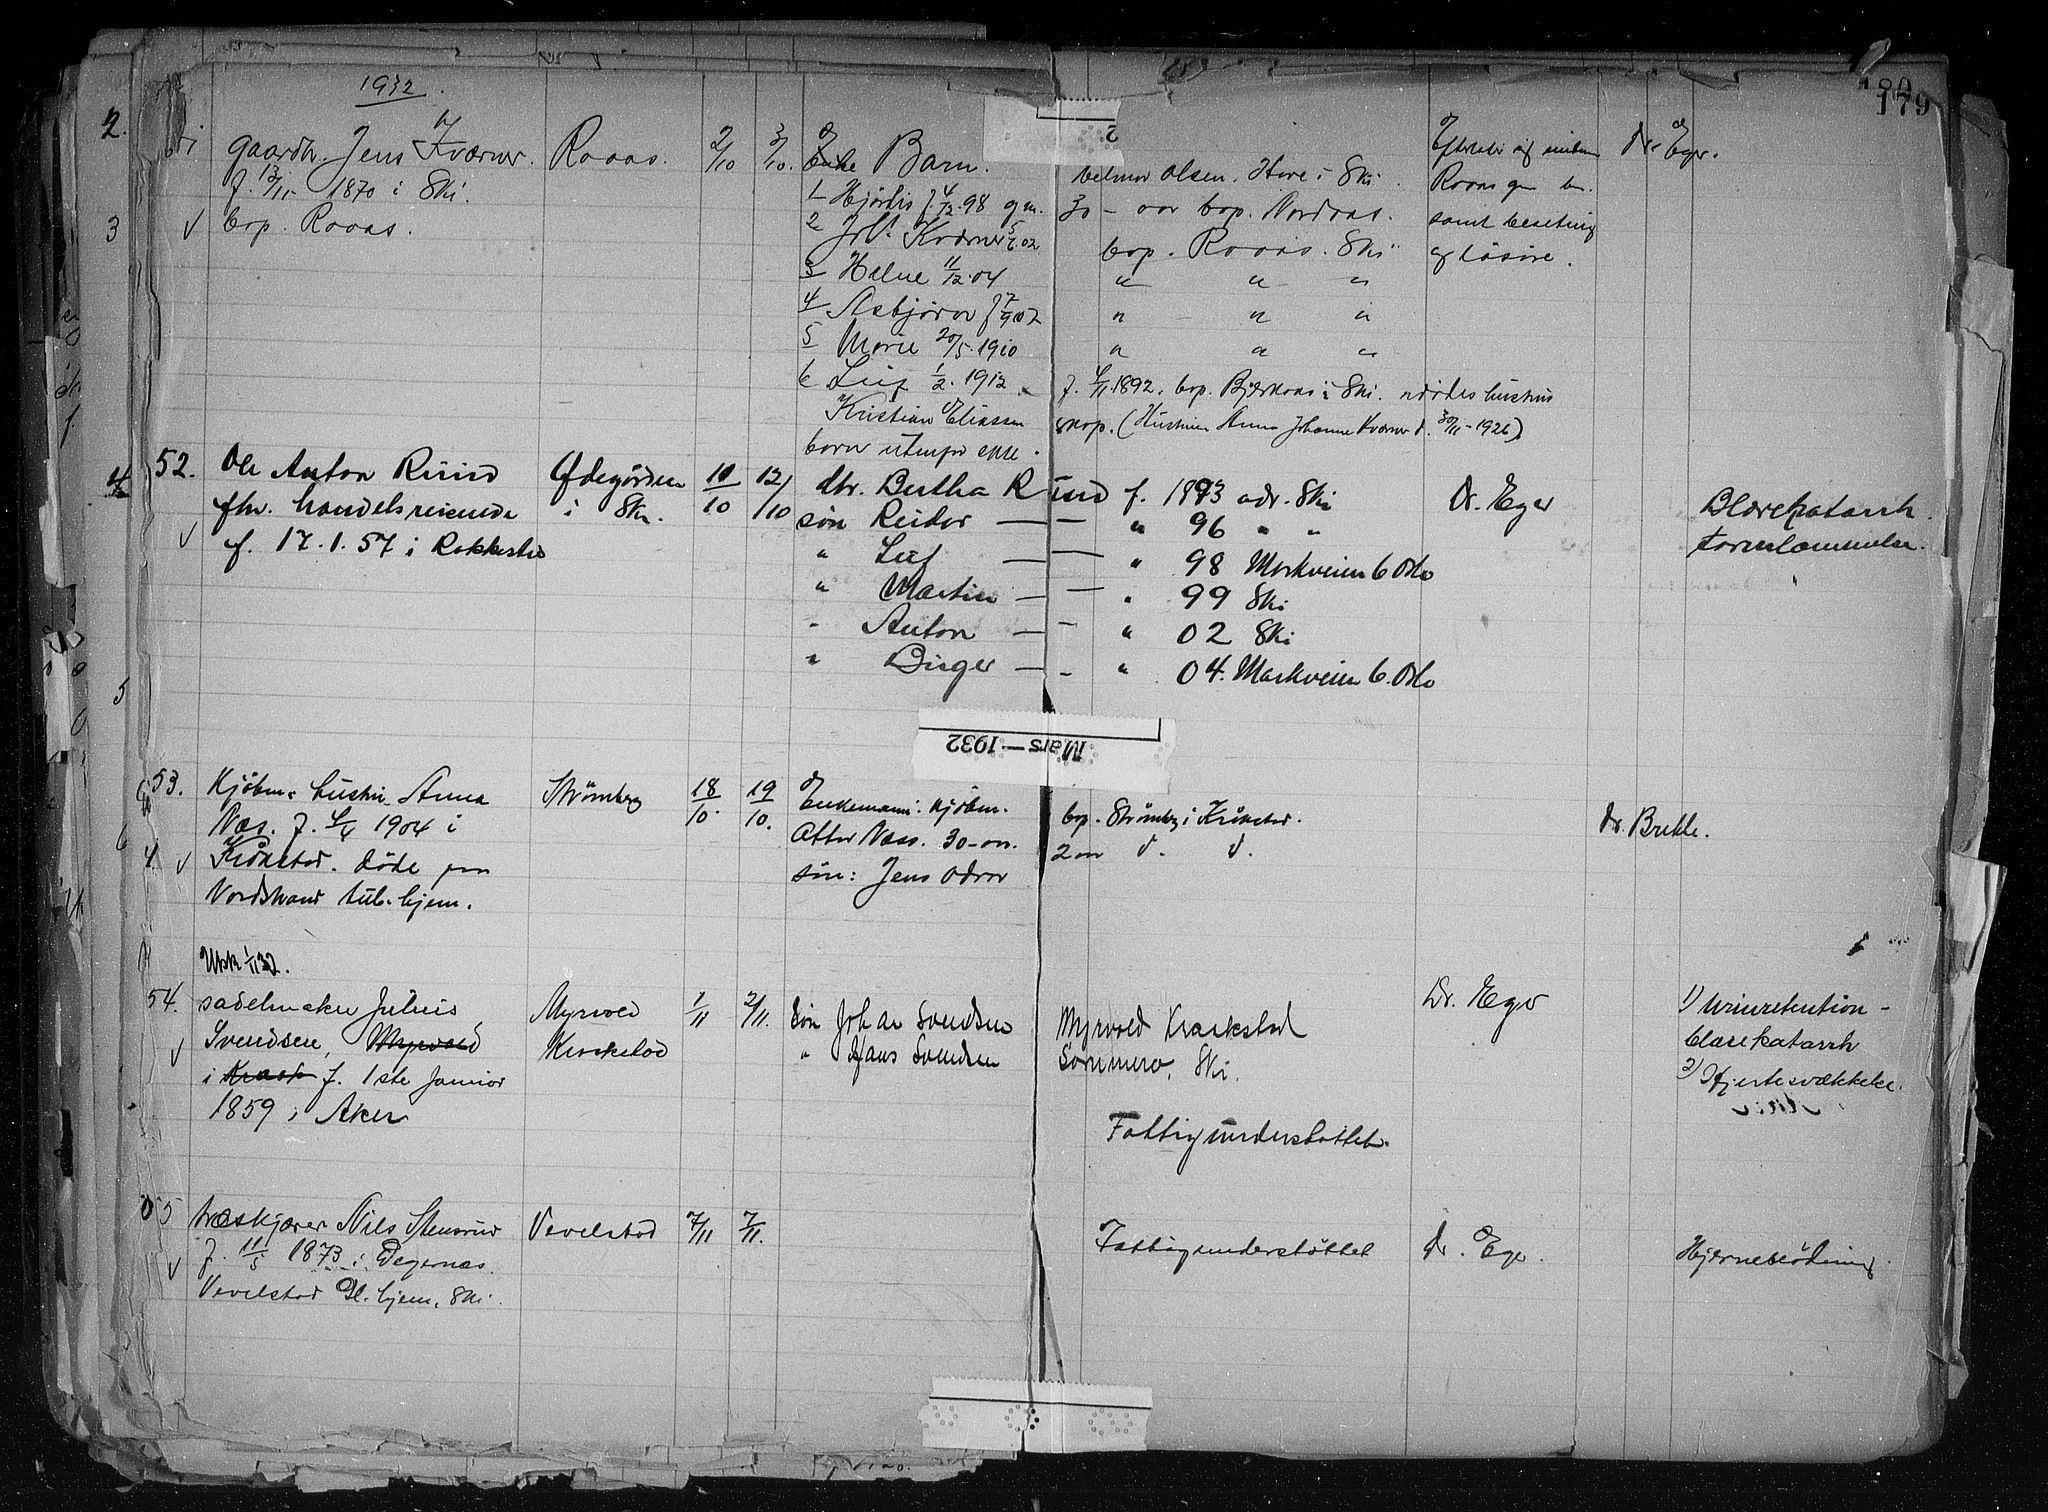 1932
179
2.
gaardbr. Jens Kværner.
f. 13/11 1870 i Ski.
bop. Roaas.
Roaas.
2/10
3/10.
Barn.
1 Hjørdis f 4/12.98 gm.
2 Joh. Kværner 5/6.02
3 Helne 11/12.04
4 Asbjørn f 7/9 07
5 Marie 20/5.1910
6 Leif 1/2.1912
Kristian Eliassen
Olsen. i Ski
30 - aar bop. Nordaas.
bop. Roaas. Ski
" " "
" " "
" " "
f. 1892. bop. i Ski.
(Hustru Anna Johanne Kværner d. 30/11-1926)
Roaas
samt besetning
og løsøre.
Dr. Eger.
3
4
52.
Ole Anton Ruud
fhv. handelsreisende
f. 17.1.57 i Rakkestad
Ødegården
i Ski.
11/10
12/10
dtr. Bertha Ruud f. 1893 adr. Ski
søn Reidar — — " 96 " "
" Leif — — " 98 Markveien 6 Oslo
" Martin — — " 99 Ski
" Anton — — " 02 Ski
" Birger — - " 04. Markveien 6. Oslo
Dr. Eger
Blærekatarrh.
5
Mars—1932
53.
Kjøbm. hustru Anna
Næs. f. 1904 i
Kråkstad. døde paa
Nordstrand tub. hjem.
Strømberg
18/10.
19/10.
Enkemann: Kjøbm.
Otter Næss. 30-aar.
søn: Jens Odvar
bop. Strømberg i Kråkstad.
2 aar d. d.
dr. Bekke.
6
Utsk 1/11 32.
54.
sadelmaker Julius
Svendsen, Myrvold
i Kraak f. 1ste Januar
1859 i Aker
Myrvold
Kraakstad
1/11
2/11.
Søn Johan Svendsen
" Hans Svendsen
Myrvold Kraakstad
Sommero, Ski.
Fattigunderstøttet.
Dr. Eger
1) Urinretention -
blærekatarrh
2) Hjertesvækkelse.
55
træskjærer Nils Stensrud
f. 11/5 1873 i Degernæs.
Vevelstad Gl. hjem, Ski.
Vevelstad
7/11
7/11.
Fattigunderstøttet
Dr. Eger.
Hjerneblødning.